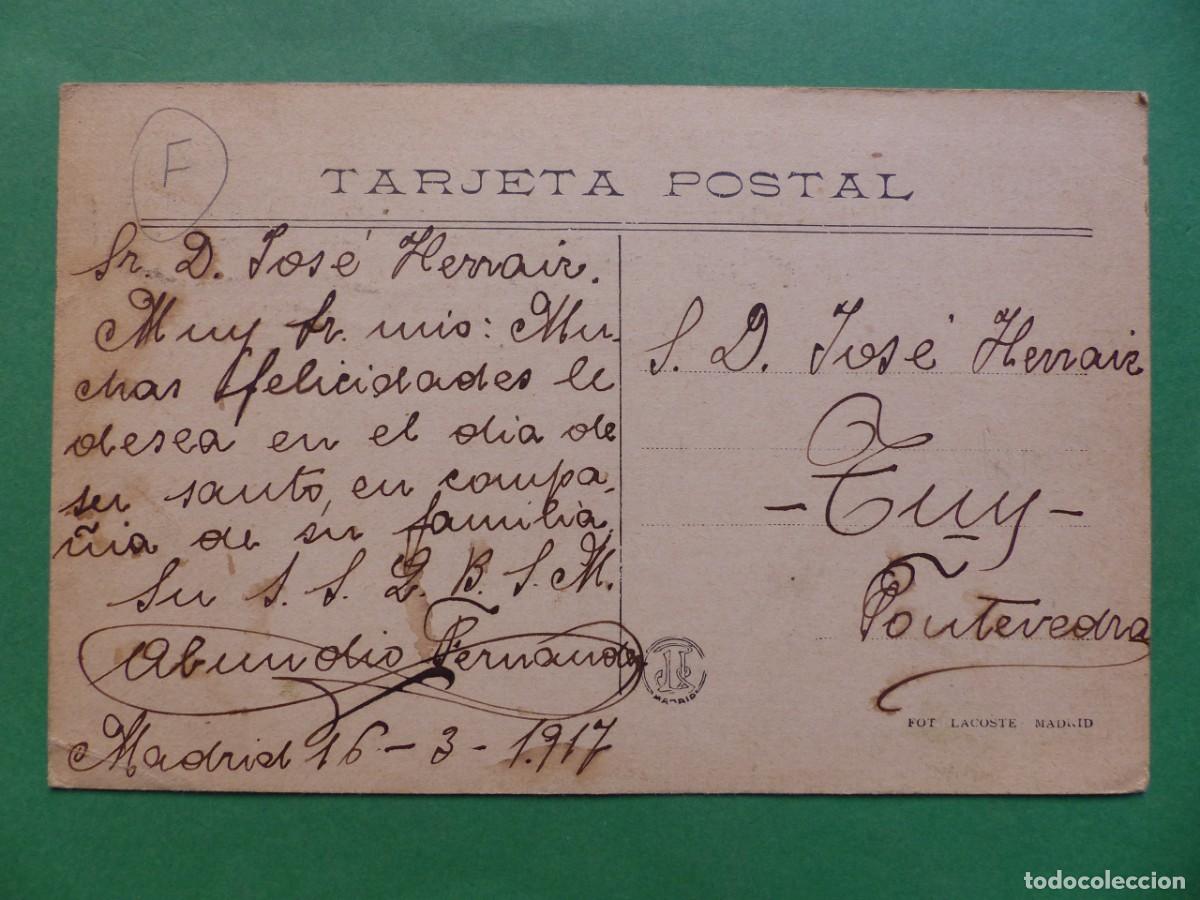 F
TARJETA POSTAL
Sr. D. José Herraiz.
Muy Sr. mio: Mu-
chas felicidades le
desea en el dia de
su santo, en compa-
ñia de su familia,
Su S. S. Q. B. S. M.
Abundio Fernandez
Madrid 16 - 3 - 1.917
S. D. José Herraiz
- Tuy -
Pontevedra
MADRID
FOT LACOSTE MADRID
todocoleccion